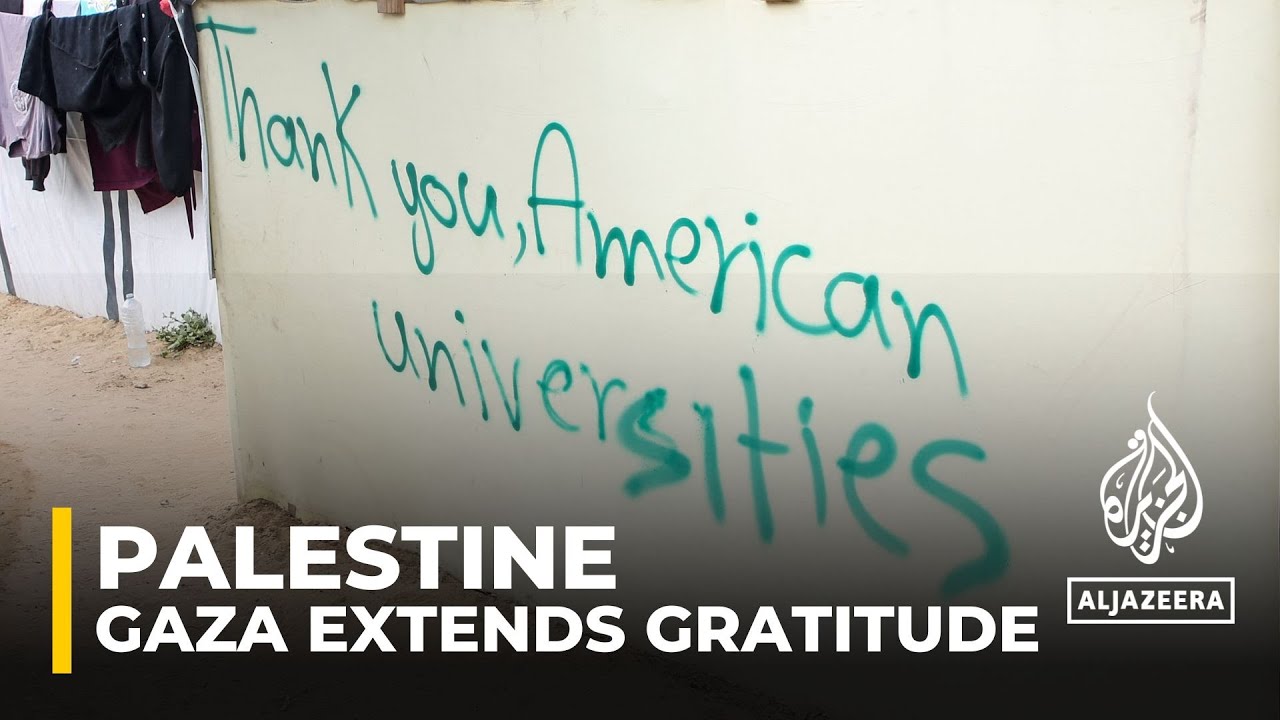 Thank you, American
universities
PALESTINE
GAZA EXTENDS GRATITUDE
الجزيرة
ALJAZEERA